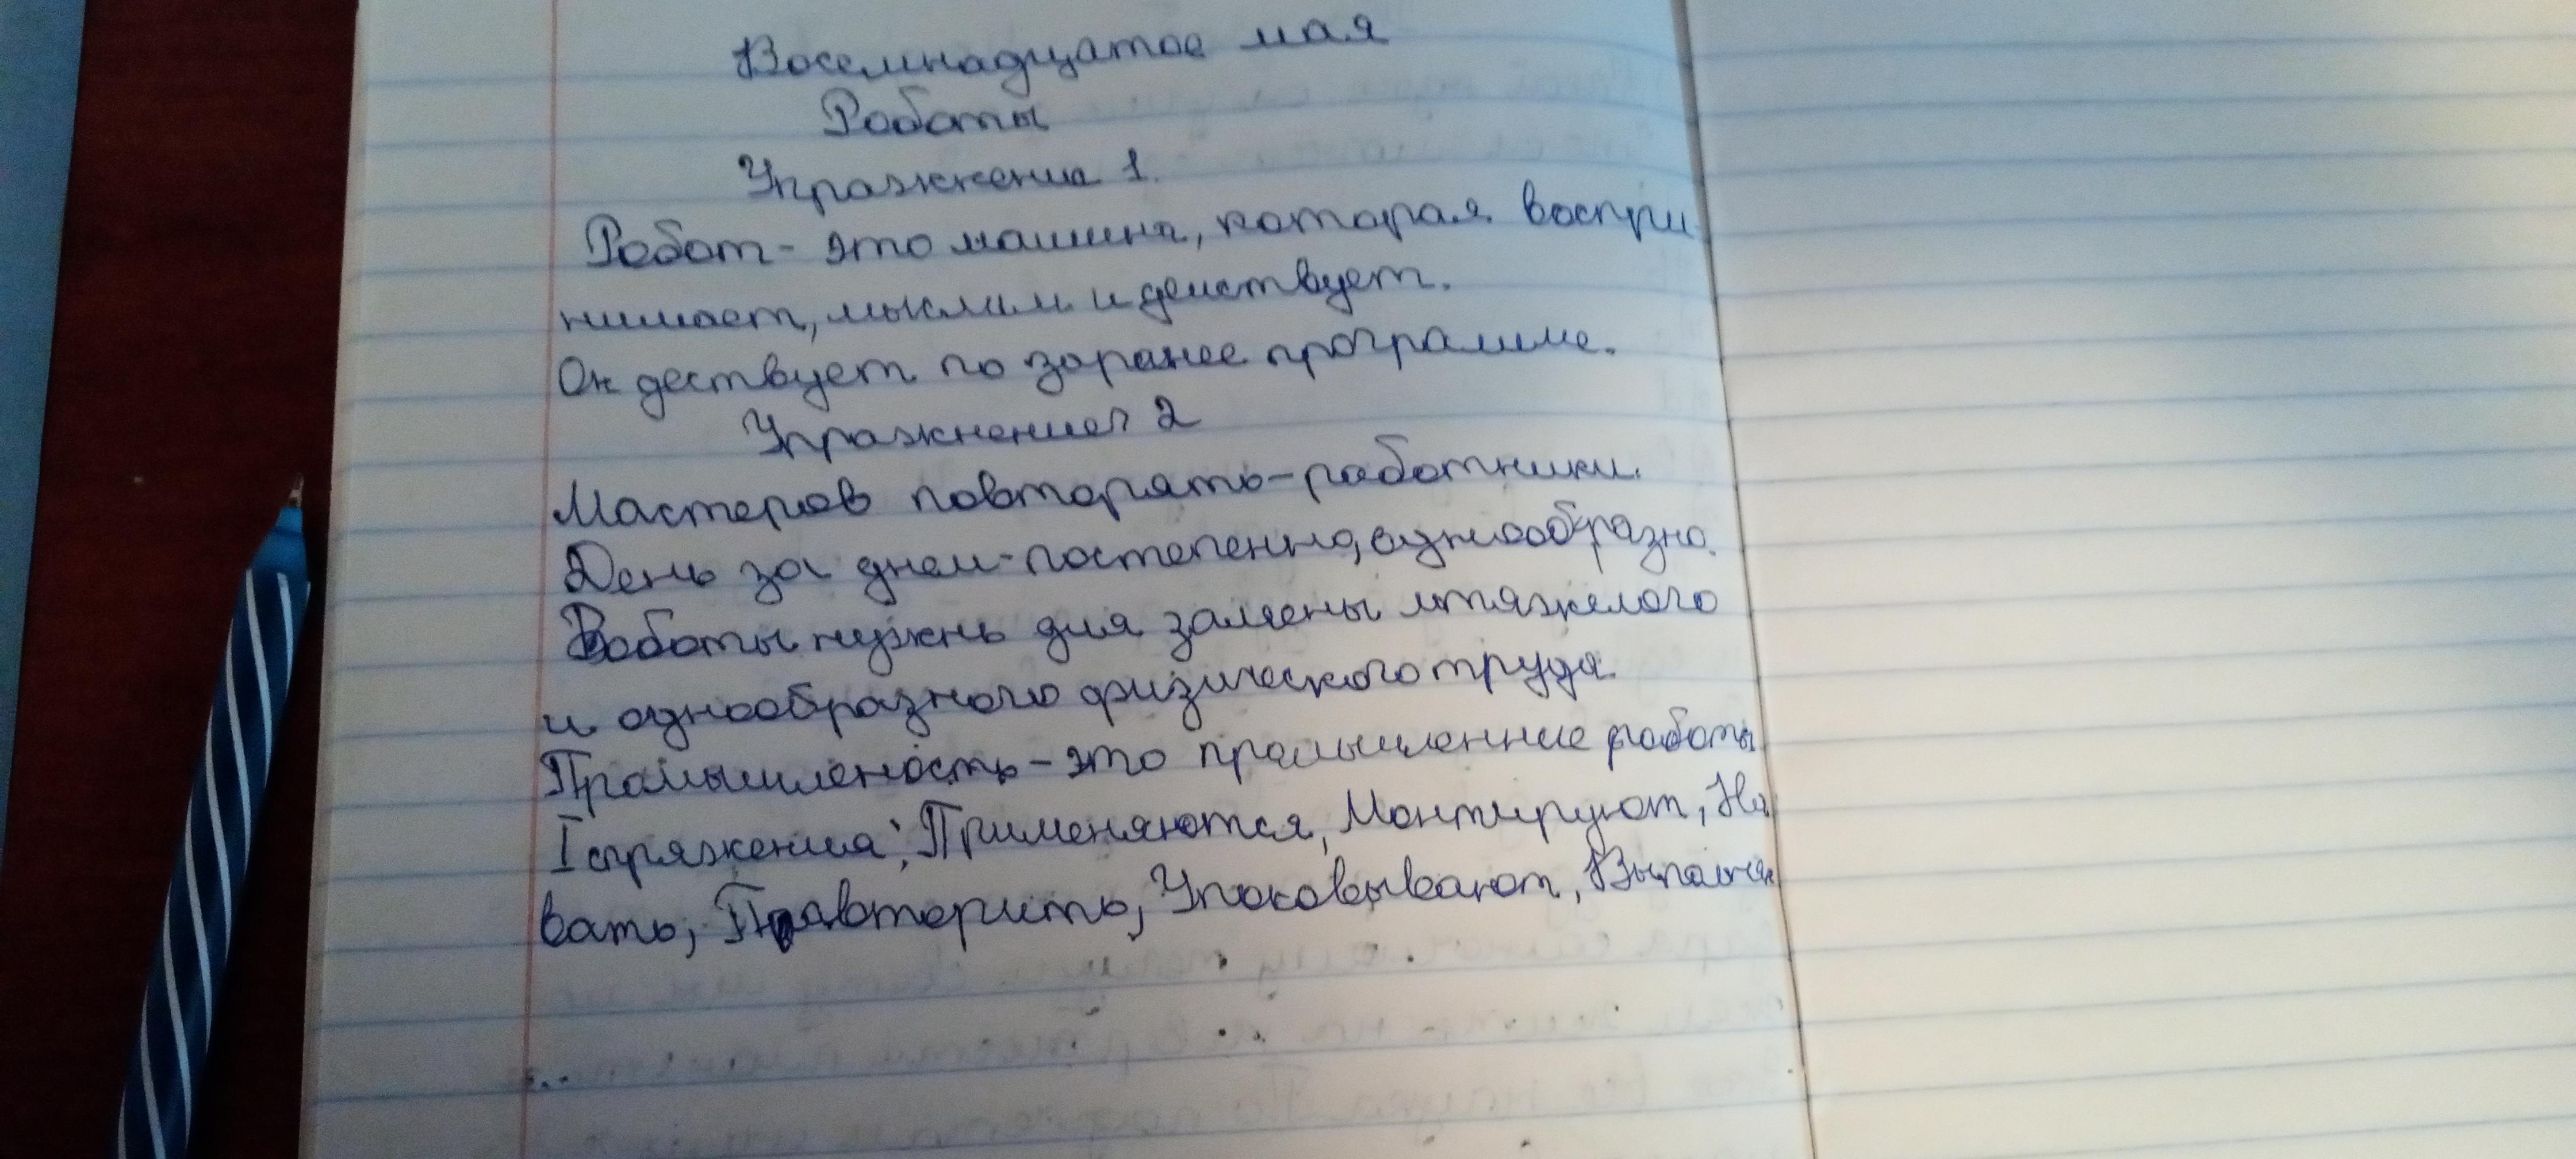 Восемнадцатое мая
Роботы
Упражнения 1.
Робот - это машина, которая воспри
нимает, мыслим и деиствует.
Он дествует по заранее программе.
Упражнения 2
Мастеров повторять - работники.
День за днем - постепенно, однообразно.
Роботы нужнь для замены тяжелого
и однообразного физического труда.
Промышленость - это промышленние работы
I спряжения; Применяются, Монтируют, На
вать, Повторить, Упаковывают,